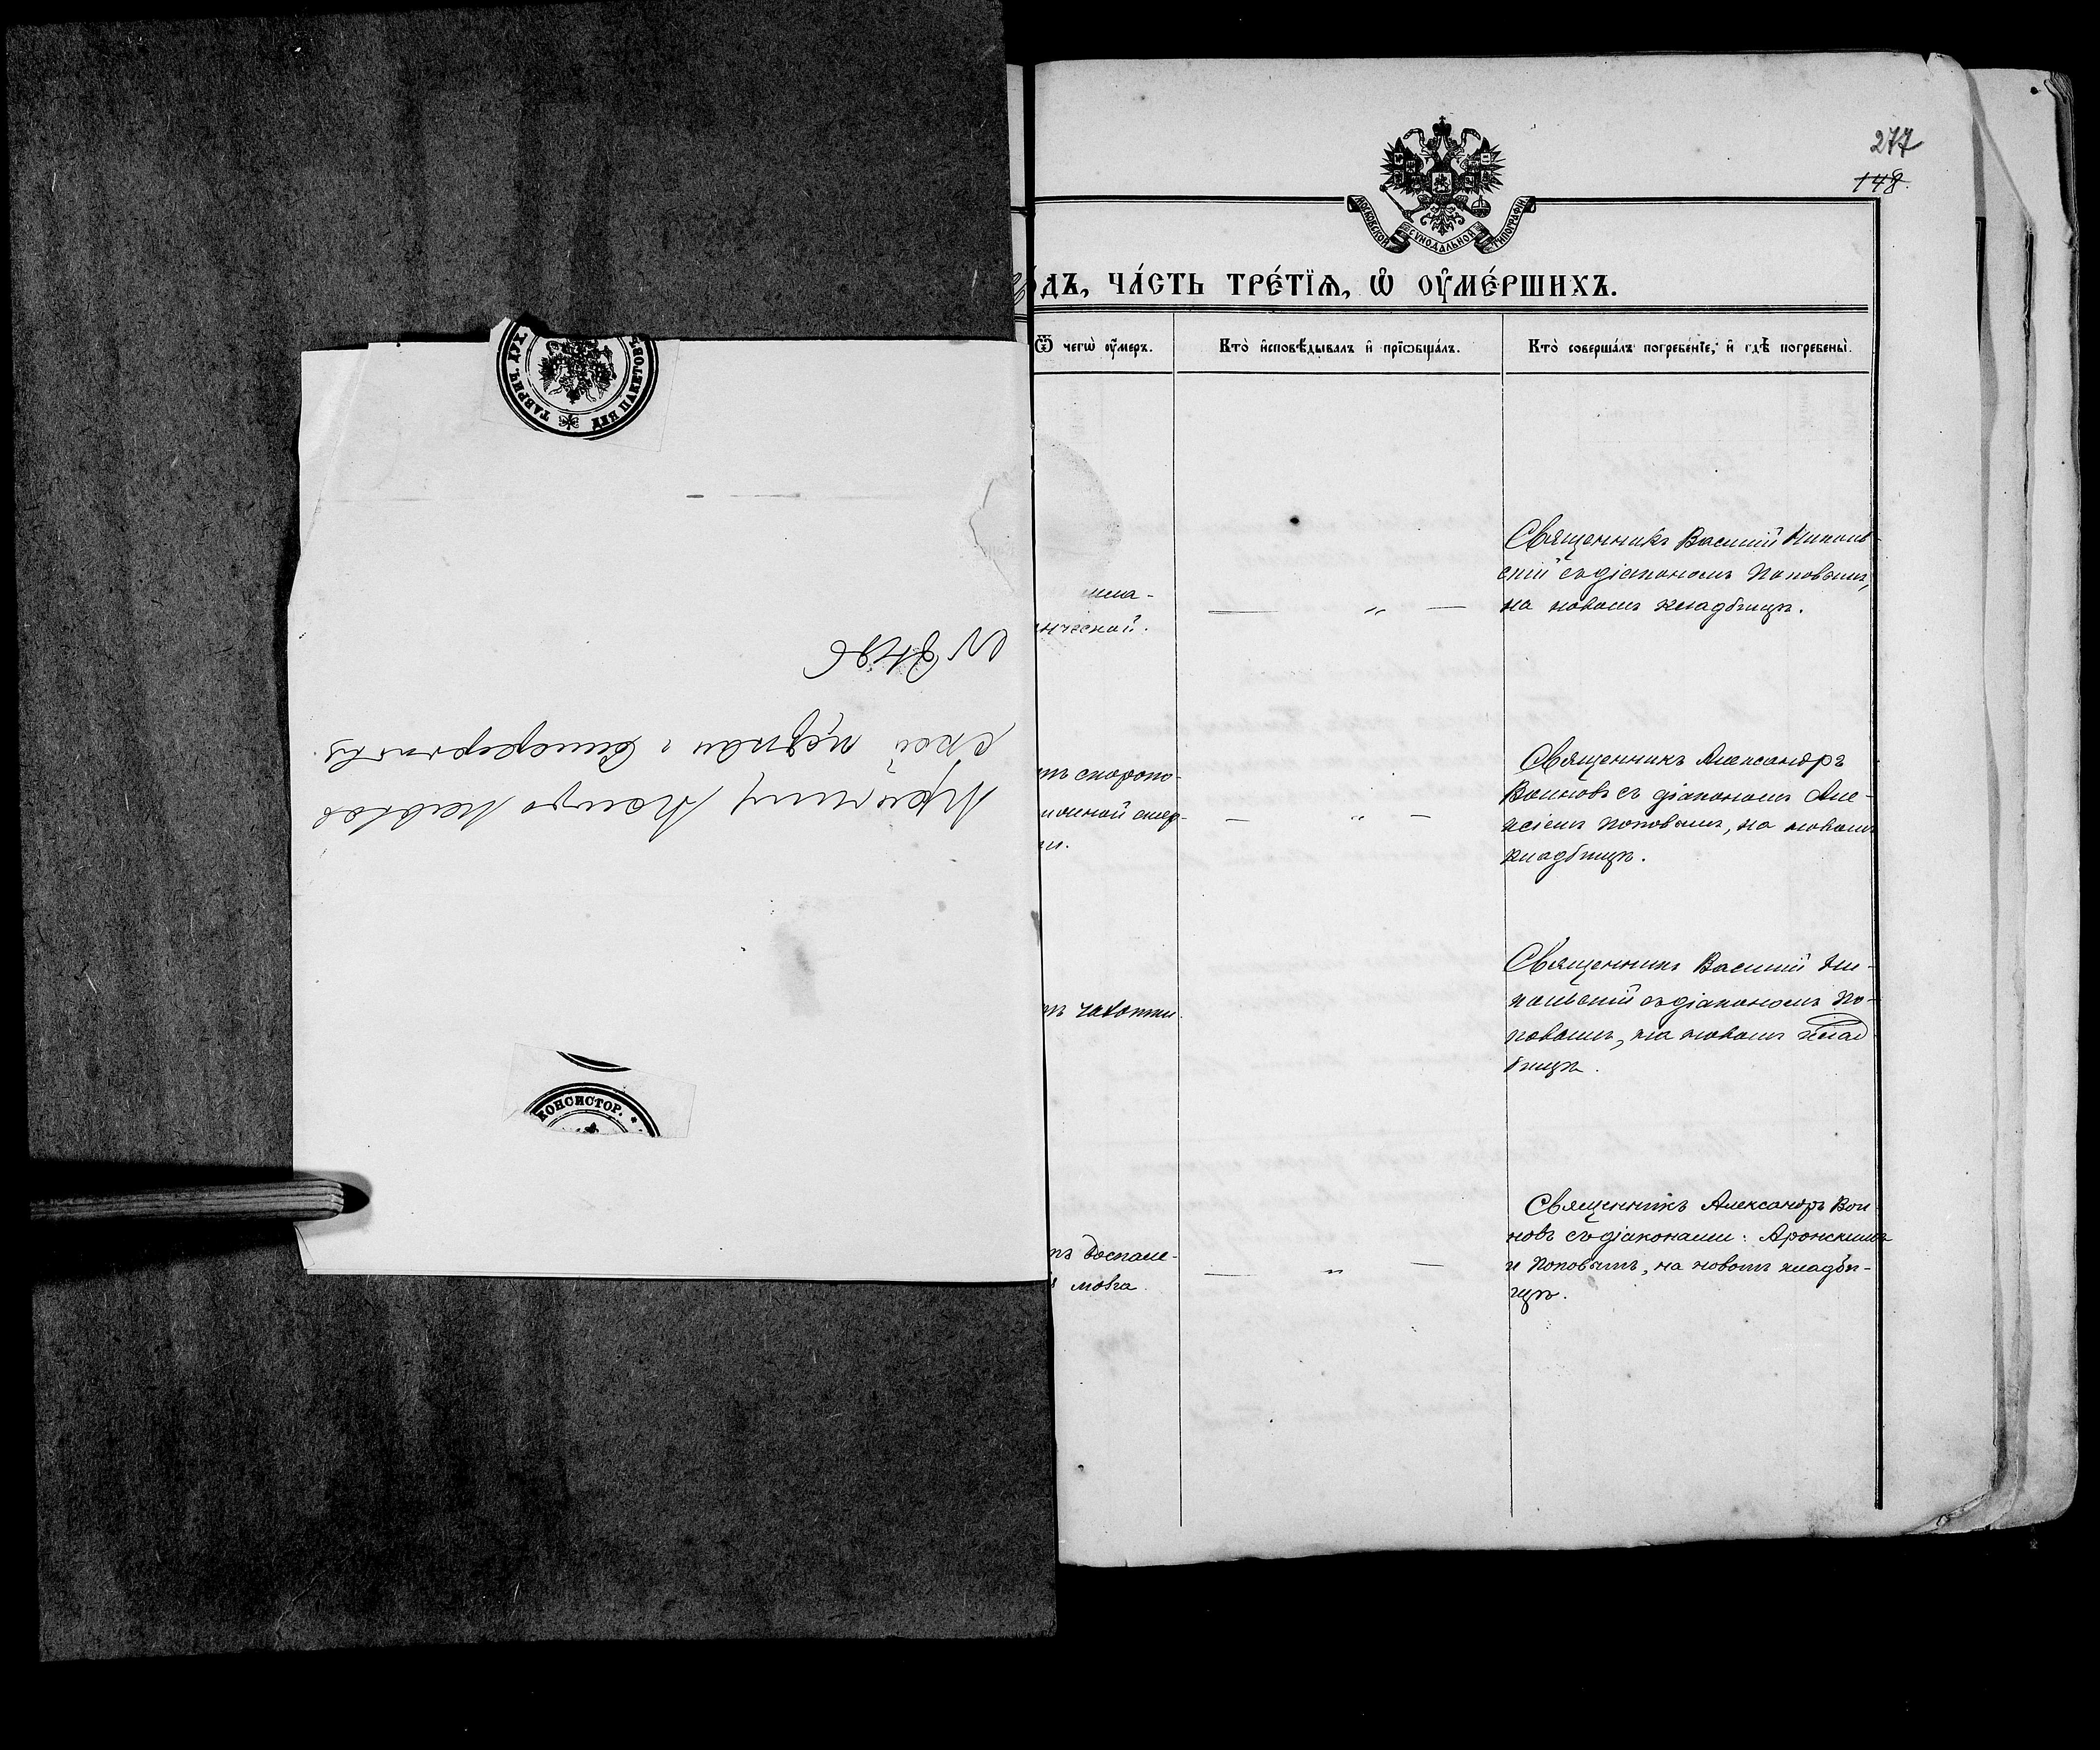 277
148.
МОСКОВСКОЙ СУНОДАЛЬНОЙ ТИПОГРАФІИ
о́дъ, ча́сть тре́тїѧ, ѡ҆ оу҆ме́ршихъ.
Ѿ чегѡ̀ оу҆́меръ.
Кто̀ и҆сповѣ́дывалъ и҆ прїѡбща́лъ.
Кто̀ соверша́лъ погребе́нїе, и҆ гдѣ̀ погребены̀.
ической.
— „ —
Священникъ Василій Николь-
скій съ діакономъ Поповымъ,
на новомъ кладбищѣ.
тъ скоропо-
тижной смер-
ти.
— „ —
Священникъ Александръ
Воиновъ съ діакономъ Але-
ксіемъ Поповымъ, на новомъ
кладбищѣ.
тъ чахотки
Священникъ Василій Ни-
кольскій съ діакономъ По-
повымъ, на новомъ клад
бищѣ.
тъ воспале-
я мозга.
— „ —
Священникъ Александръ Вои
новъ съ діаконами: Аронскимъ
и Поповымъ, на новомъ кладби-
щѣ.
ТАВРИЧ. ДУХ.
ДЛЯ ПАКЕТОВЪ
ской церкви г. Симферополь
№ 8496
КОНСИСТОР.